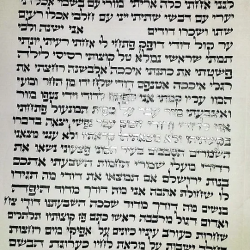 לגני אחתי כלה אריתי מורי עם בשמי אכלתי
יערי עם דבשי שתיתי ייני עם חלבי אכלו רעים
שתו ושכרו דודים אני ישנה ולבי
ער קול דודי דופק פתחי לי אחתי רעיתי יונתי
תמתי שראשי נמלא טל קוצותי רסיסי לילה
פשטתי את כתנתי איככה אלבשנה רחצתי את
רגלי איככה אטנפם דודי שלח ידו מן החר ומעי
המו עליו קמתי אני נטפו מור
ואצבעתי מור כפות המנעול פתחתי
נפשי יצאה בדברו
ולא ענני מצאני
השמרים הסבבים בעיר נשאו את
רדידי מעלי שמרי החמות השבעתי אתכם
בנות ירושלם אם תמצאו את דודי מה תגידו
לו שחולת אהבה אני מה דודך מדוד היפה
בנשים מה דודך מדוד שככה השבעתנו דודי צח
ואדום דגול מרבבה ראשו כתם פז קוצותיו תלתלים
שחרות כעורב עיניו כיונים על אפיקי מים רחצות
בחלב ישבות על מלאת לחיו כערוגת הבשם